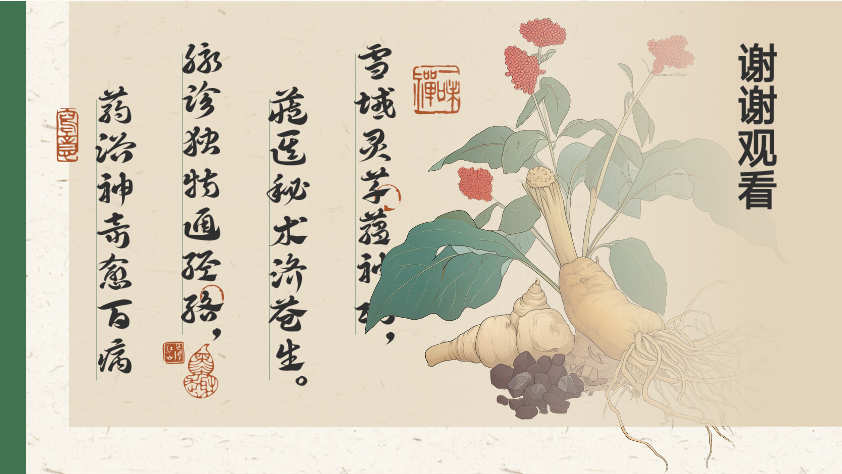 谢谢观看
一味禪
雪域灵草蕴神，
藏医秘术济苍生。
脉诊独特通经络，
药浴神奇愈百病